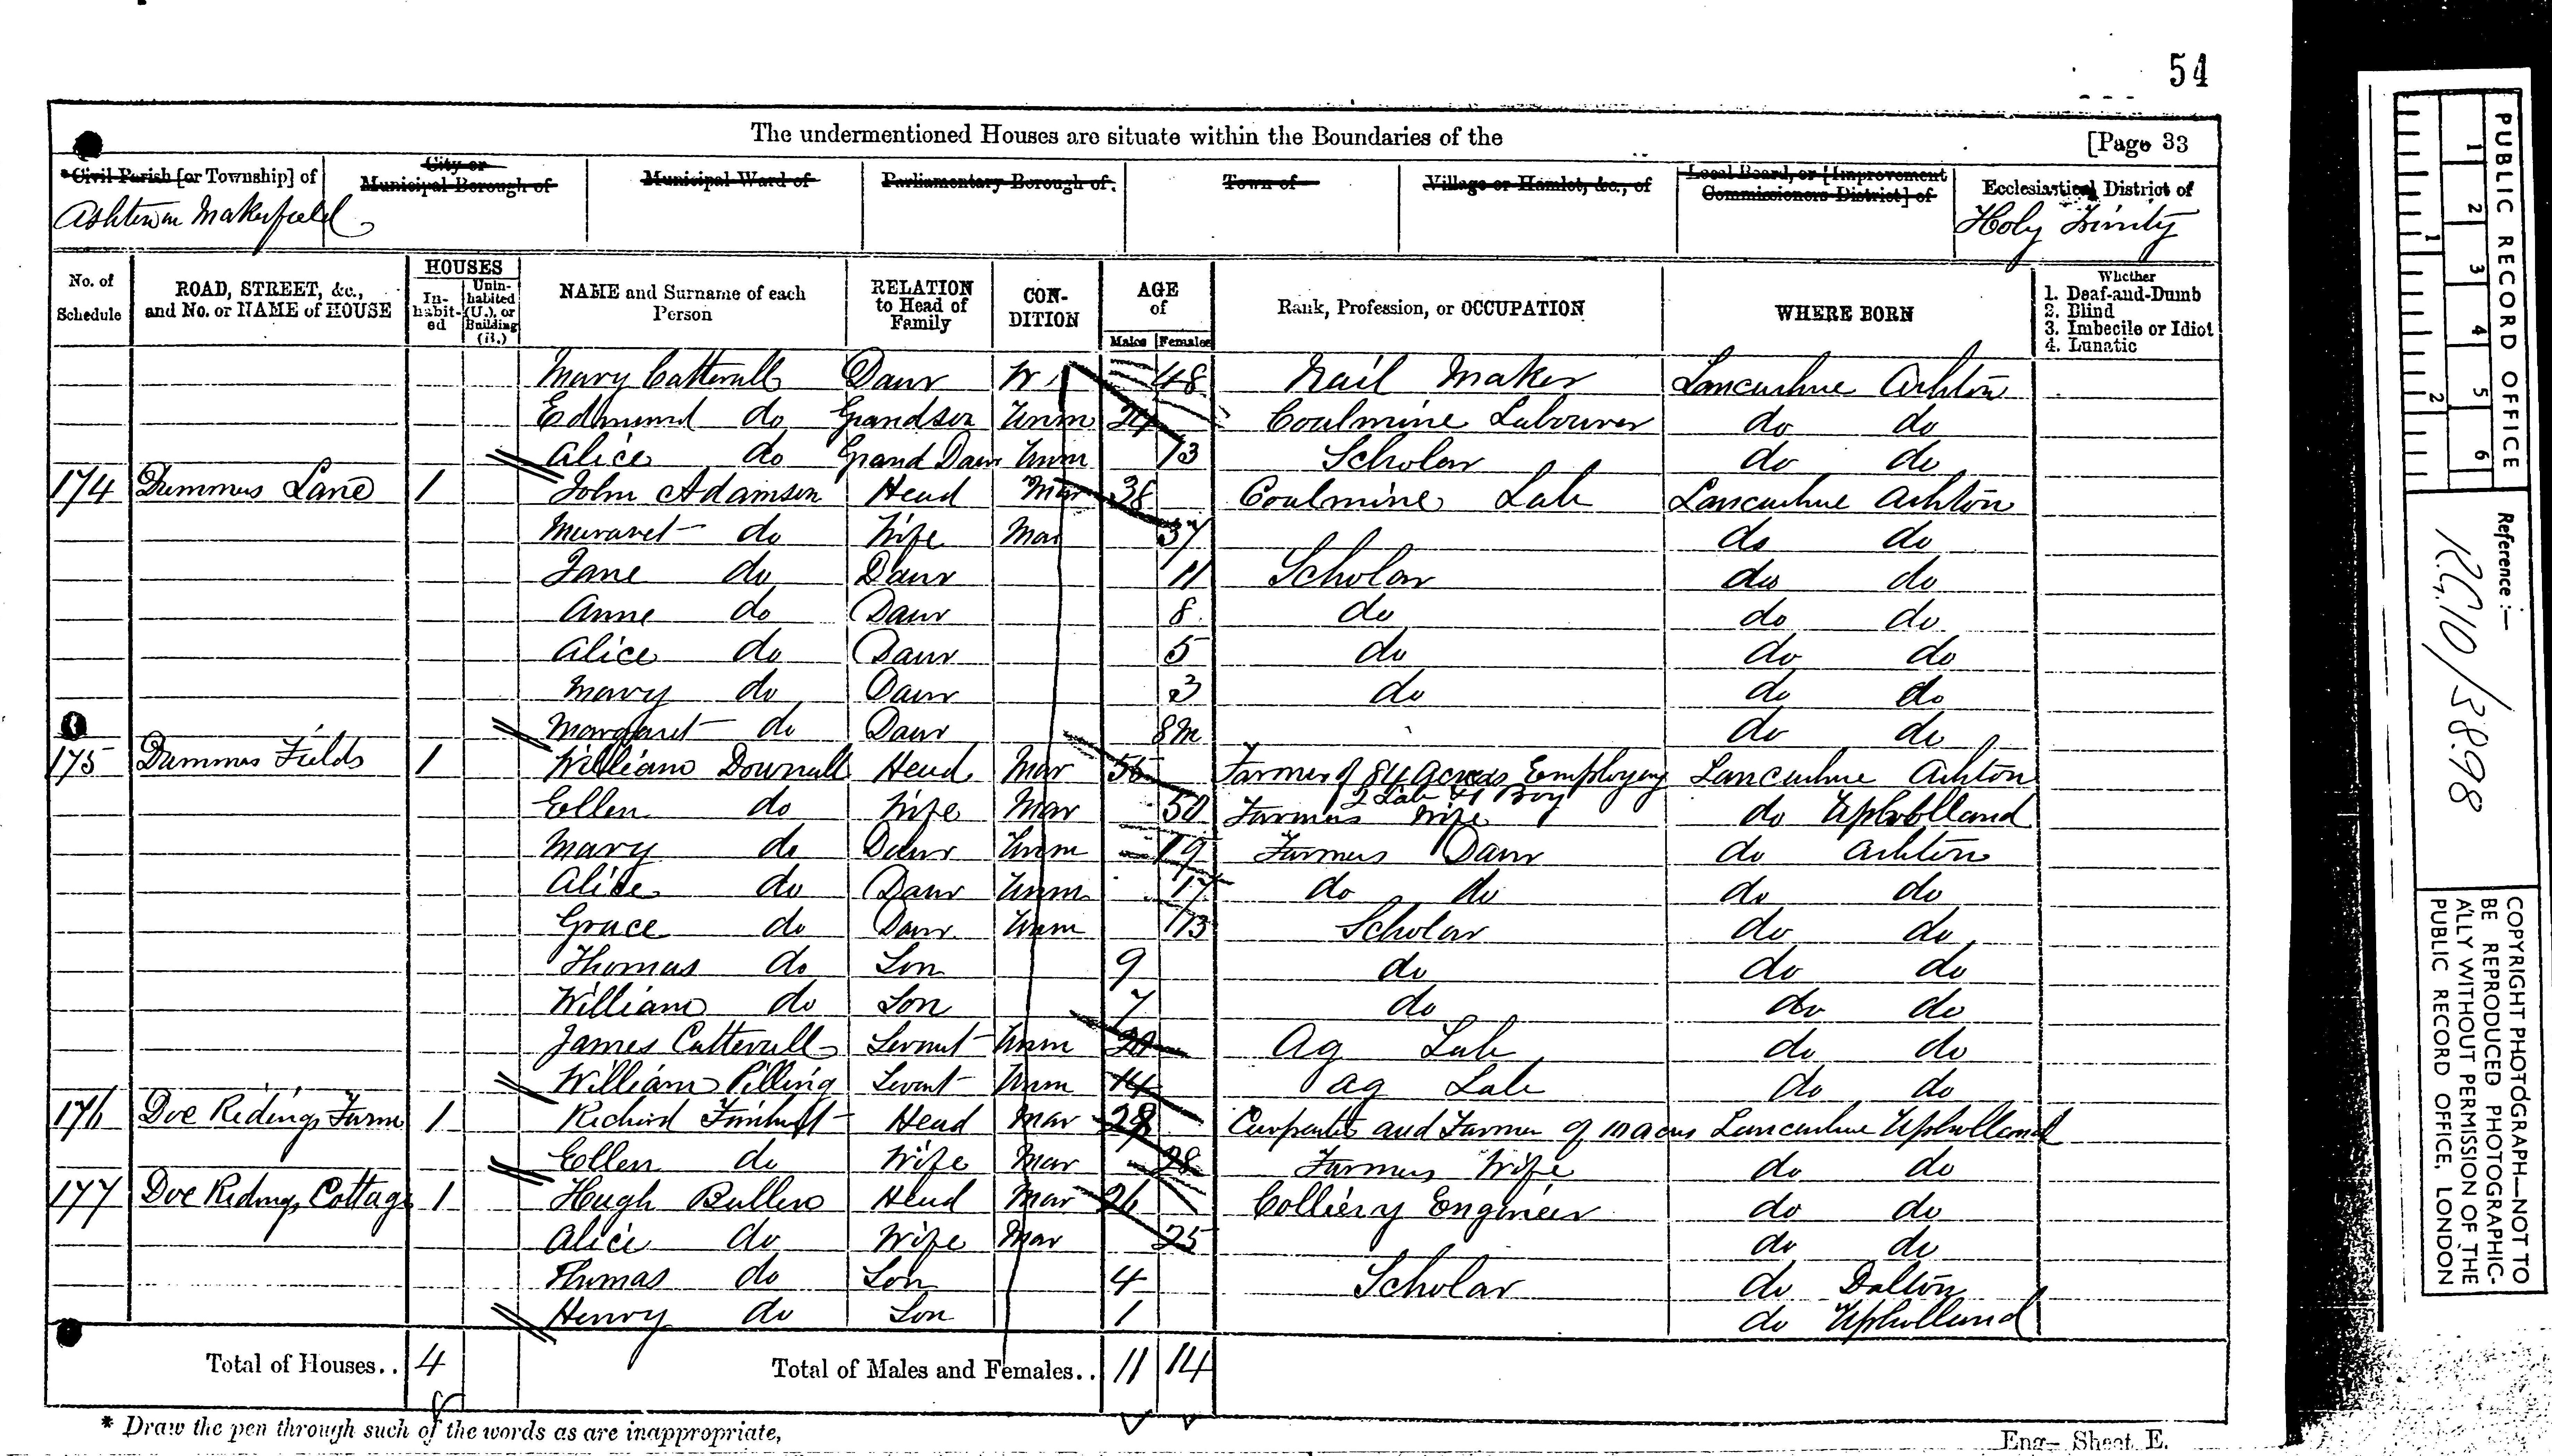 54
The undermentioned Houses are situate within the Boundaries of the [Page 33
Civil Parish [or Township] of City or Municipal Borough of Municipal Ward of Parliamentary Borough of Town of Village or Hamlet, &c., of Local Board, or [Improvement Commissioners District] of Ecclesiastical District of
Ashton in Makerfield Holy Trinity
No. of Schedule ROAD, STREET, &c., and No. or NAME of HOUSE HOUSES In-habit-ed Unin-habited (U.), or Building (B.) NAME and Surname of each Person RELATION to Head of Family CON-DITION AGE of Males Females Rank, Profession, or OCCUPATION WHERE BORN Whether 1. Deaf-and-Dumb 2. Blind 3. Imbecile or Idiot 4. Lunatic
Mary Catterall Daur W 48 Nail Maker Lancashire Ashton
Edmund do Grandson Unm 24 Coalmine Labourer do do
Alice do Grand Daur Unm 13 Scholar do do
174 Lane 1 John Adamson Head Mar 38 Coalmine Lab Lancashire Ashton
do Wife Mar 37 do do
Jane do Daur 11 Scholar do do
Anne do Daur 8 do do do
Alice do Daur 5 do do do
Mary do Daur 3 do do do
Margaret do Daur 8m do do
175 Fields 1 William Downall Head Mar 55 Farmer of 84 acres Employing 2 Lab & 1 Boy Lancashire Ashton
Ellen do Wife Mar 50 Farmers Wife do Upholland
Mary do Daur Unm 19 Farmers Daur do Ashton
Alice do Daur Unm 17 do do do do
Grace do Daur Unm 13 Scholar do do
Thomas do Son 9 do do do
William do Son 7 do do do
James Catterall Servnt Unm 20 Ag Lab do do
William Pilling Servnt Unm 14 Ag Lab do do
176 Doe Ridings Farm 1 Richard Head Mar 28 Carpenter and Farmer of acres Lancashire Upholland
Ellen do Wife Mar 28 Farmers Wife do do
177 Doe Ridings Cottage 1 Hugh Bullen Head Mar 26 Colliery Engineer do do
Alice do Wife Mar 25 do do
Thomas do Son 4 Scholar do Dalton
Henry do Son 1 do Upholland
Total of Houses.. 4 Total of Males and Females.. 11 14
* Draw the pen through such of the words as are inappropriate,
Eng— Sheet E.
PUBLIC RECORD OFFICE
1 2 3 4 5 6
1 2
Reference:—
R.G.10/3898
COPYRIGHT PHOTOGRAPH—NOT TO
BE REPRODUCED PHOTOGRAPHIC-
ALLY WITHOUT PERMISSION OF THE
PUBLIC RECORD OFFICE, LONDON